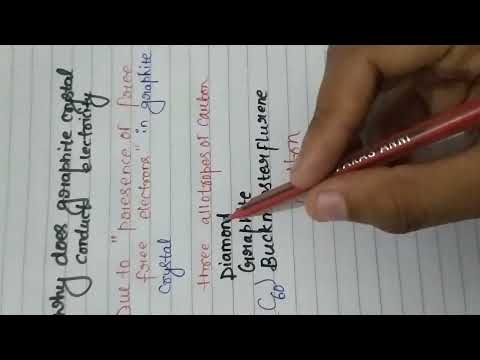 why does goraphite crystal
conducts electoricity
Due to "poresence of foree
foree electrons" in goraphite
Coystal
thoree allotoropes of Caubon
Diamond
Goraphite
(C60) Buckministarflurene